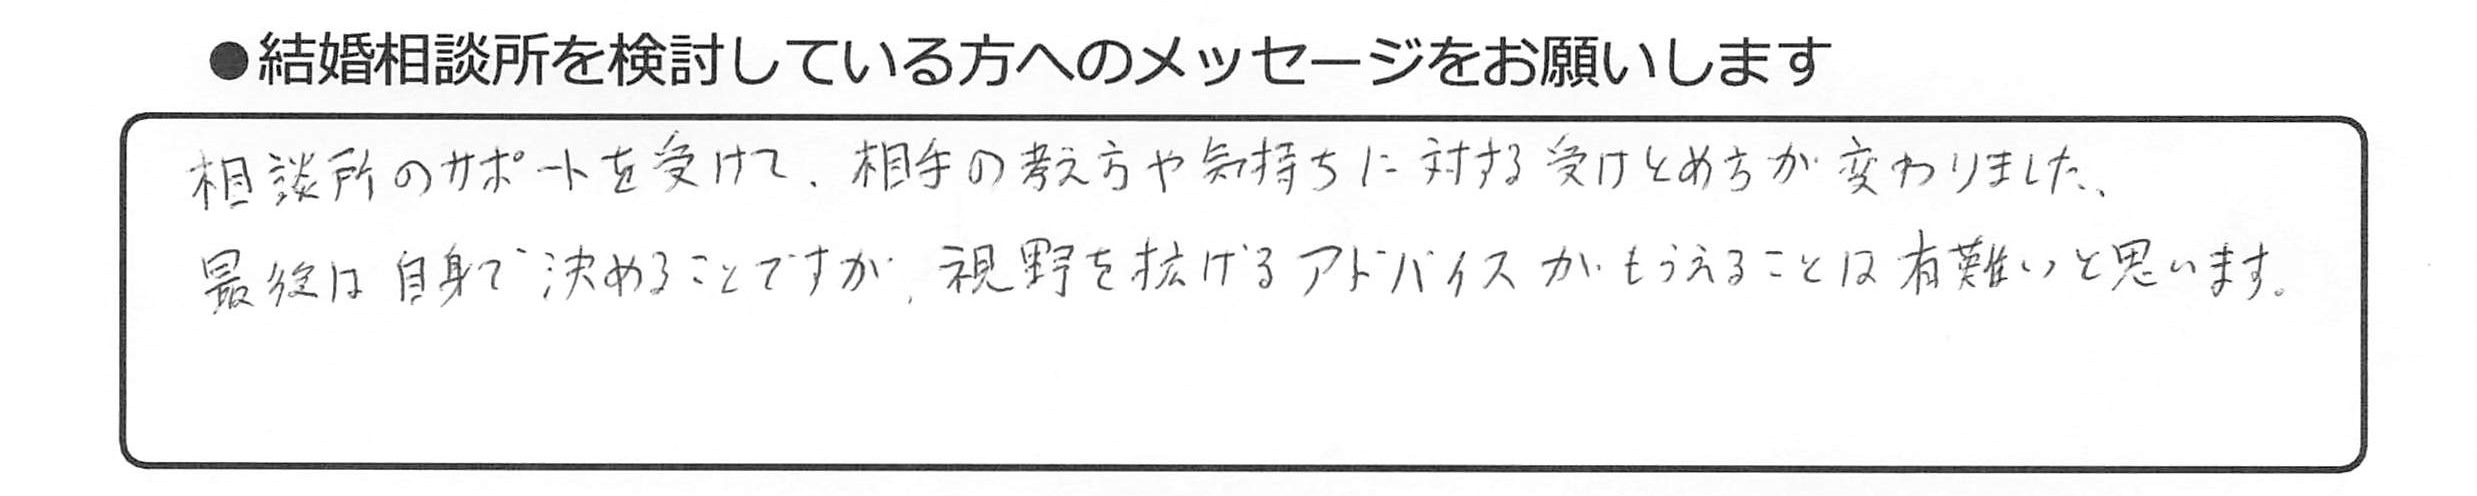 ●結婚相談所を検討している方へのメッセージをお願いします
相談所のサポートを受けて、相手の考え方や気持ちに対する受けとめ方が変わりました、
最後は自身で決めることですが、視野を拡げるアドバイスがもらえることは有難いと思います。